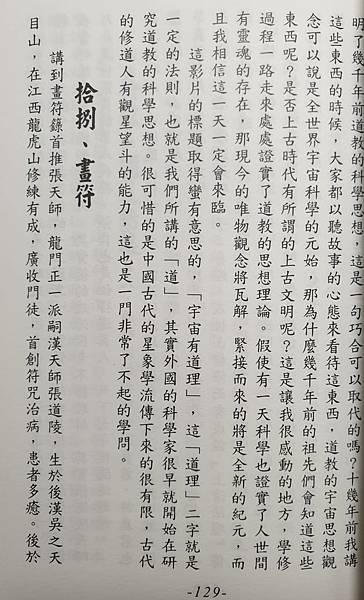 明了幾千年前道教的科學思想，這是一句巧合可以取代的嗎？十幾年前我講
這些東西的時候，大家都以聽故事的心態來看待這東西，道教的宇宙思想觀
念可以說是全世界宇宙科學的元始，那為什麼幾千年前的祖先們會知道這些
東西呢？是否上古時代有所謂的上古文明呢？這是讓我很感動的地方，學修
過程一路走來處處證實了道教的思想理論。假使有一天科學也證實了人世間
有靈魂的存在，那現今的唯物觀念將瓦解，緊接而來的將是全新的紀元，而
且我相信這一天一定會來臨。
這影片的標題取得蠻有意思的，「宇宙有道理」，這「道理」二字就是
一定的法則，也就是我們所講的「道」，其實外國的科學家很早就開始在研
究道教的科學思想。很可惜的是中國古代的星象學流傳下來的很有限，古代
的修道人有觀星望斗的能力，這也是一門非常了不起的學問。
拾捌、畫符
講到畫符籙首推張天師，龍門正一派嗣漢天師張道陵，生於後漢吳之天
目山，在江西龍虎山修練有成，廣收門徒，首創符咒治病，患者多癒。後於
-129-